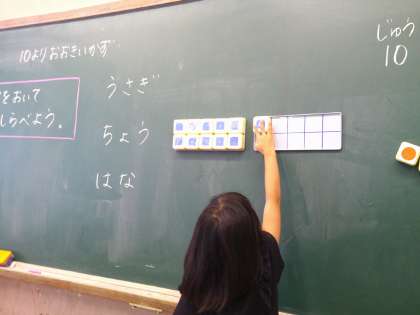 10よりおおきいかず
をおいて
しらべよう。
うさぎ
ちょう
はな
じゅう
10